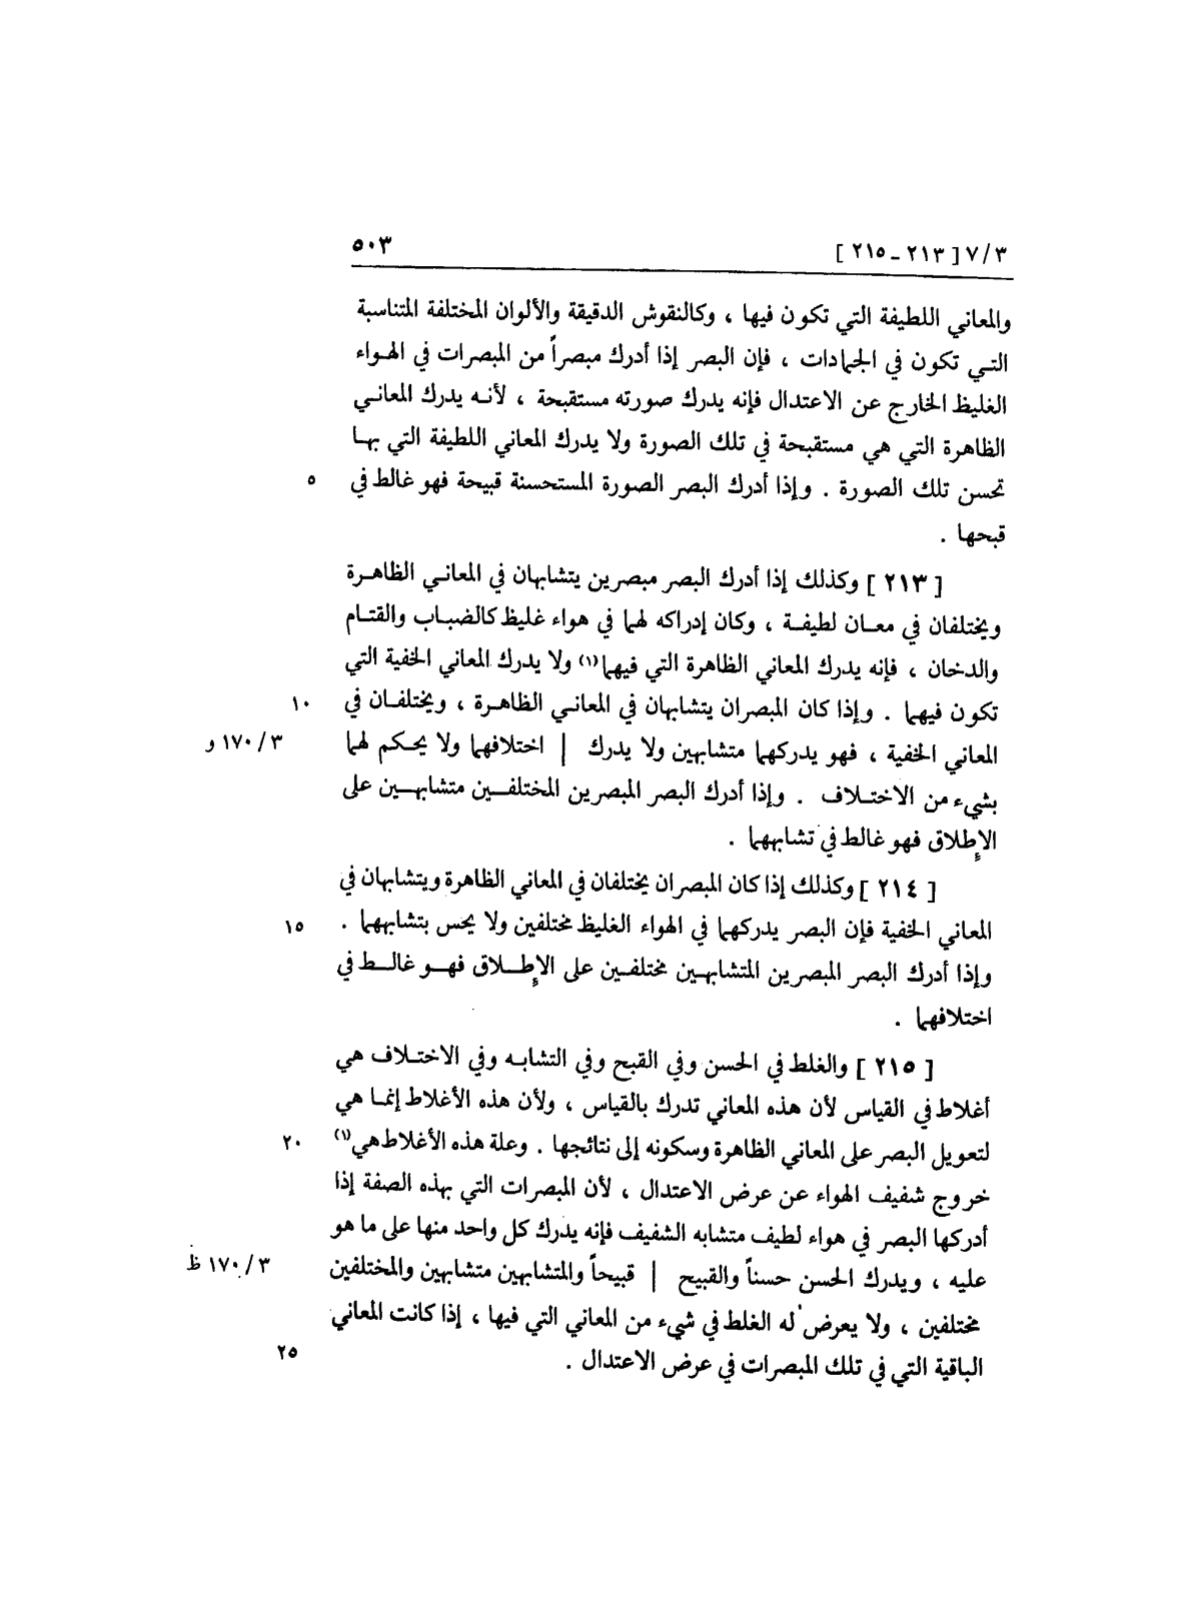 ٧/٣ [ ٢١٣ - ٢١٥ ] ٥٠٣
والمعاني اللطيفة التي تكون فيها ، وكالنقوش الدقيقة والألوان المختلفة المتناسبة
التي تكون في الجمادات ، فإن البصر إذا أدرك مبصراً من المبصرات في الهواء
الغليظ الخارج عن الاعتدال فإنه يدرك صورته مستقبحة ، لأنه يدرك المعاني
الظاهرة التي هي مستقبحة في تلك الصورة ولا يدرك المعاني اللطيفة التي بها
تحسن تلك الصورة . وإذا أدرك البصر الصورة المستحسنة قبيحة فهو غالط في ٥
قبحها .
[ ٢١٣ ] وكذلك إذا أدرك البصر مبصرين يتشابهان في المعاني الظاهرة
ويختلفان في معان لطيفة ، وكان إدراكه لهما في هواء غليظ كالضباب والقتام
والدخان ، فإنه يدرك المعاني الظاهرة التي فيهما(١) ولا يدرك المعاني الخفية التي
تكون فيهما . وإذا كان المبصران يتشابهان في المعاني الظاهرة ، ويختلفان في ١٠
المعاني الخفية ، فهو يدركهما متشابهين ولا يدرك | اختلافهما ولا يحكم لهما ٣/ ١٧٠ و
بشيء من الاختلاف . وإذا أدرك البصر المبصرين المختلفين متشابهين على
الإطلاق فهو غالط في تشابههما .
[ ٢١٤ ] وكذلك إذا كان المبصران يختلفان في المعاني الظاهرة ويتشابهان في
المعاني الخفية فإن البصر يدركهما في الهواء الغليظ مختلفين ولا يحس بتشابههما . ١٥
وإذا أدرك البصر المبصرين المتشابهين مختلفين على الإطلاق فهو غالط في
اختلافهما .
[ ٢١٥ ] والغلط في الحسن وفي القبح وفي التشابه وفي الاختلاف هي
أغلاط في القياس لأن هذه المعاني تدرك بالقياس ، ولأن هذه الأغلاط إنما هي
لتعويل البصر على المعاني الظاهرة وسكونه إلى نتائجها . وعلة هذه الأغلاط هي(١) ٢٠
خروج شفيف الهواء عن عرض الاعتدال ، لأن المبصرات التي بهذه الصفة إذا
أدركها البصر في هواء لطيف متشابه الشفيف فإنه يدرك كل واحد منها على ما هو
عليه ، ويدرك الحسن حسناً والقبيح | قبيحاً والمتشابهين متشابهين والمختلفين ٣/ ١٧٠ ظ
مختلفين ، ولا يعرض له الغلط في شيء من المعاني التي فيها ، إذا كانت المعاني
الباقية التي في تلك المبصرات في عرض الاعتدال . ٢٥